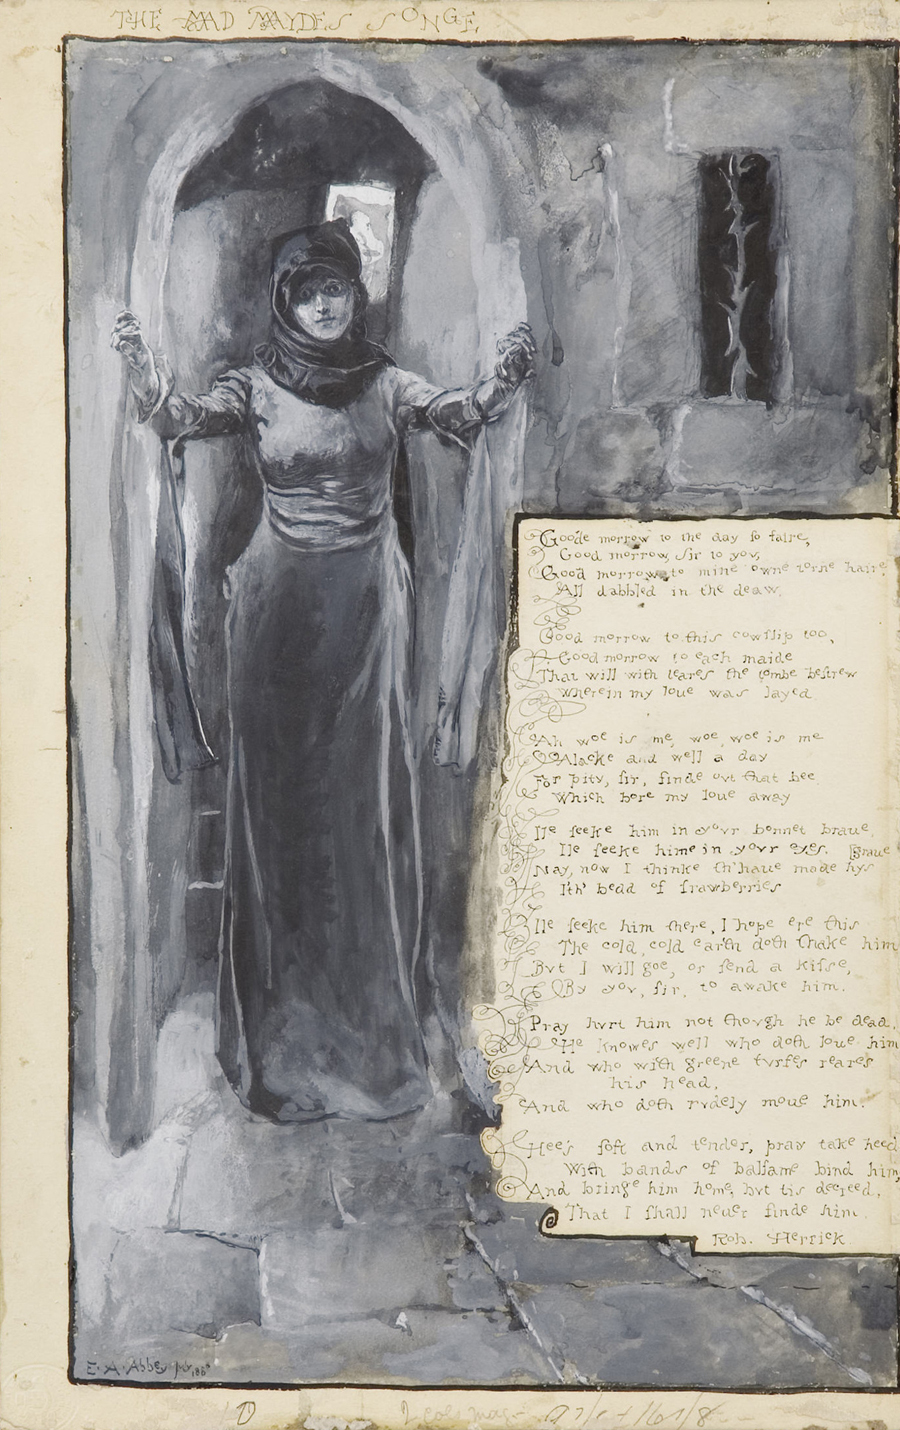 THE MAD MAYDES SONGE
Goode morrow to the day so faire,
Good morrow, sir to yov,
Good morrow to mine owne torne haire
All dabbled in the deaw.
Good morrow to this cowslip too,
Good morrow to each maide
That will with teares the tombe bestrew
Wherein my loue was layed
Ah woe is me, woe, woe is me
Alacke and well a day
For pity, sir, finde ovt that bee
Which bore my loue away
Ile seeke him in yovr bonnet braue,
Ile seeke him in yovr eyes. [graue
Nay, now I thinke th'haue made hys
I'th' bedd of strawberries
Ile seeke him there, I hope ere this
The cold, cold earth doth shake him
Bvt I will goe, or send a kisse,
By yov, sir, to awake him.
Pray hvrt him not thovgh he be dead,
He knowes well who doth loue him
And who with greene tvrfes reares
his head,
And who doth rvdely moue him.
Hee's soft and tender, pray take heed
With bands of balsame bind him,
And bringe him home, bvt tis decreed,
That I shall neuer finde him.
Rob. Herrick
E. A. Abbey